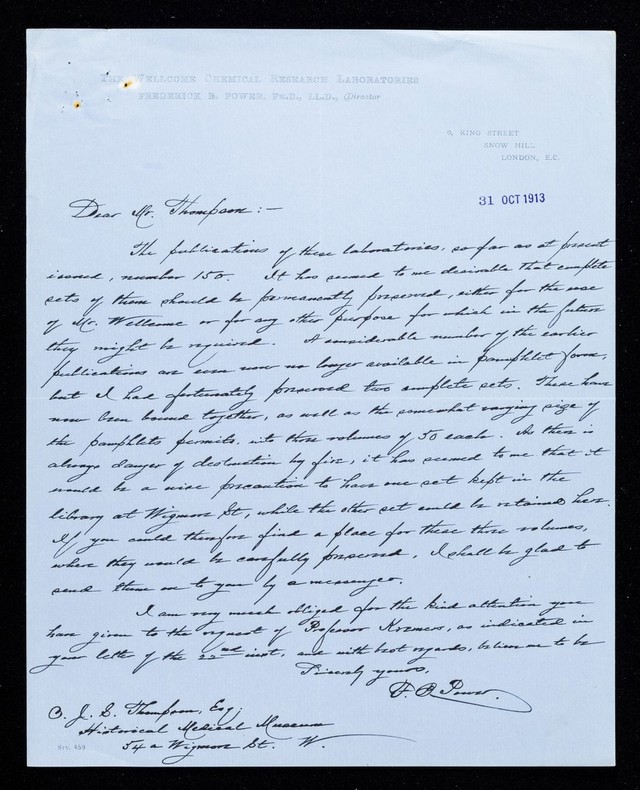 THE WELLCOME CHEMICAL RESEARCH LABORATORIES
FREDERICK B. POWER, PH.D., LL.D., Director
6, KING STREET
SNOW HILL
LONDON, E.C.
31 OCT 1913
Dear Mr. Thompson:—
The publications of these laboratories, so far as at present
issued, number 150. It has seemed to me desirable that complete
sets of them should be permanently preserved, either for the use
of Mr. Wellcome or for any other purpose for which in the future
they might be required. A considerable number of the earlier
publications are even now no longer available in pamphlet form,
but I had fortunately preserved two complete sets. These have
now been bound together, as well as the somewhat varying size of
the pamphlets permits, into three volumes of 50 each. As there is
always danger of destruction by fire, it has seemed to me that it
would be a wise precaution to have one set kept in the
library at Wigmore St., while the other set could be retained here.
If you could therefore find a place for these three volumes,
where they would be carefully preserved, I shall be glad to
send them on to you by a messenger.
I am very much obliged for the kind attention you
have given to the request of Professor Kremers, as indicated in
your letter of the 22nd inst., and with best regards, believe me to be
Sincerely yours,
F. B. Power.
C. J. S. Thompson, Esq;
Historical Medical Museum
54a Wigmore St. W.
Sty. 459